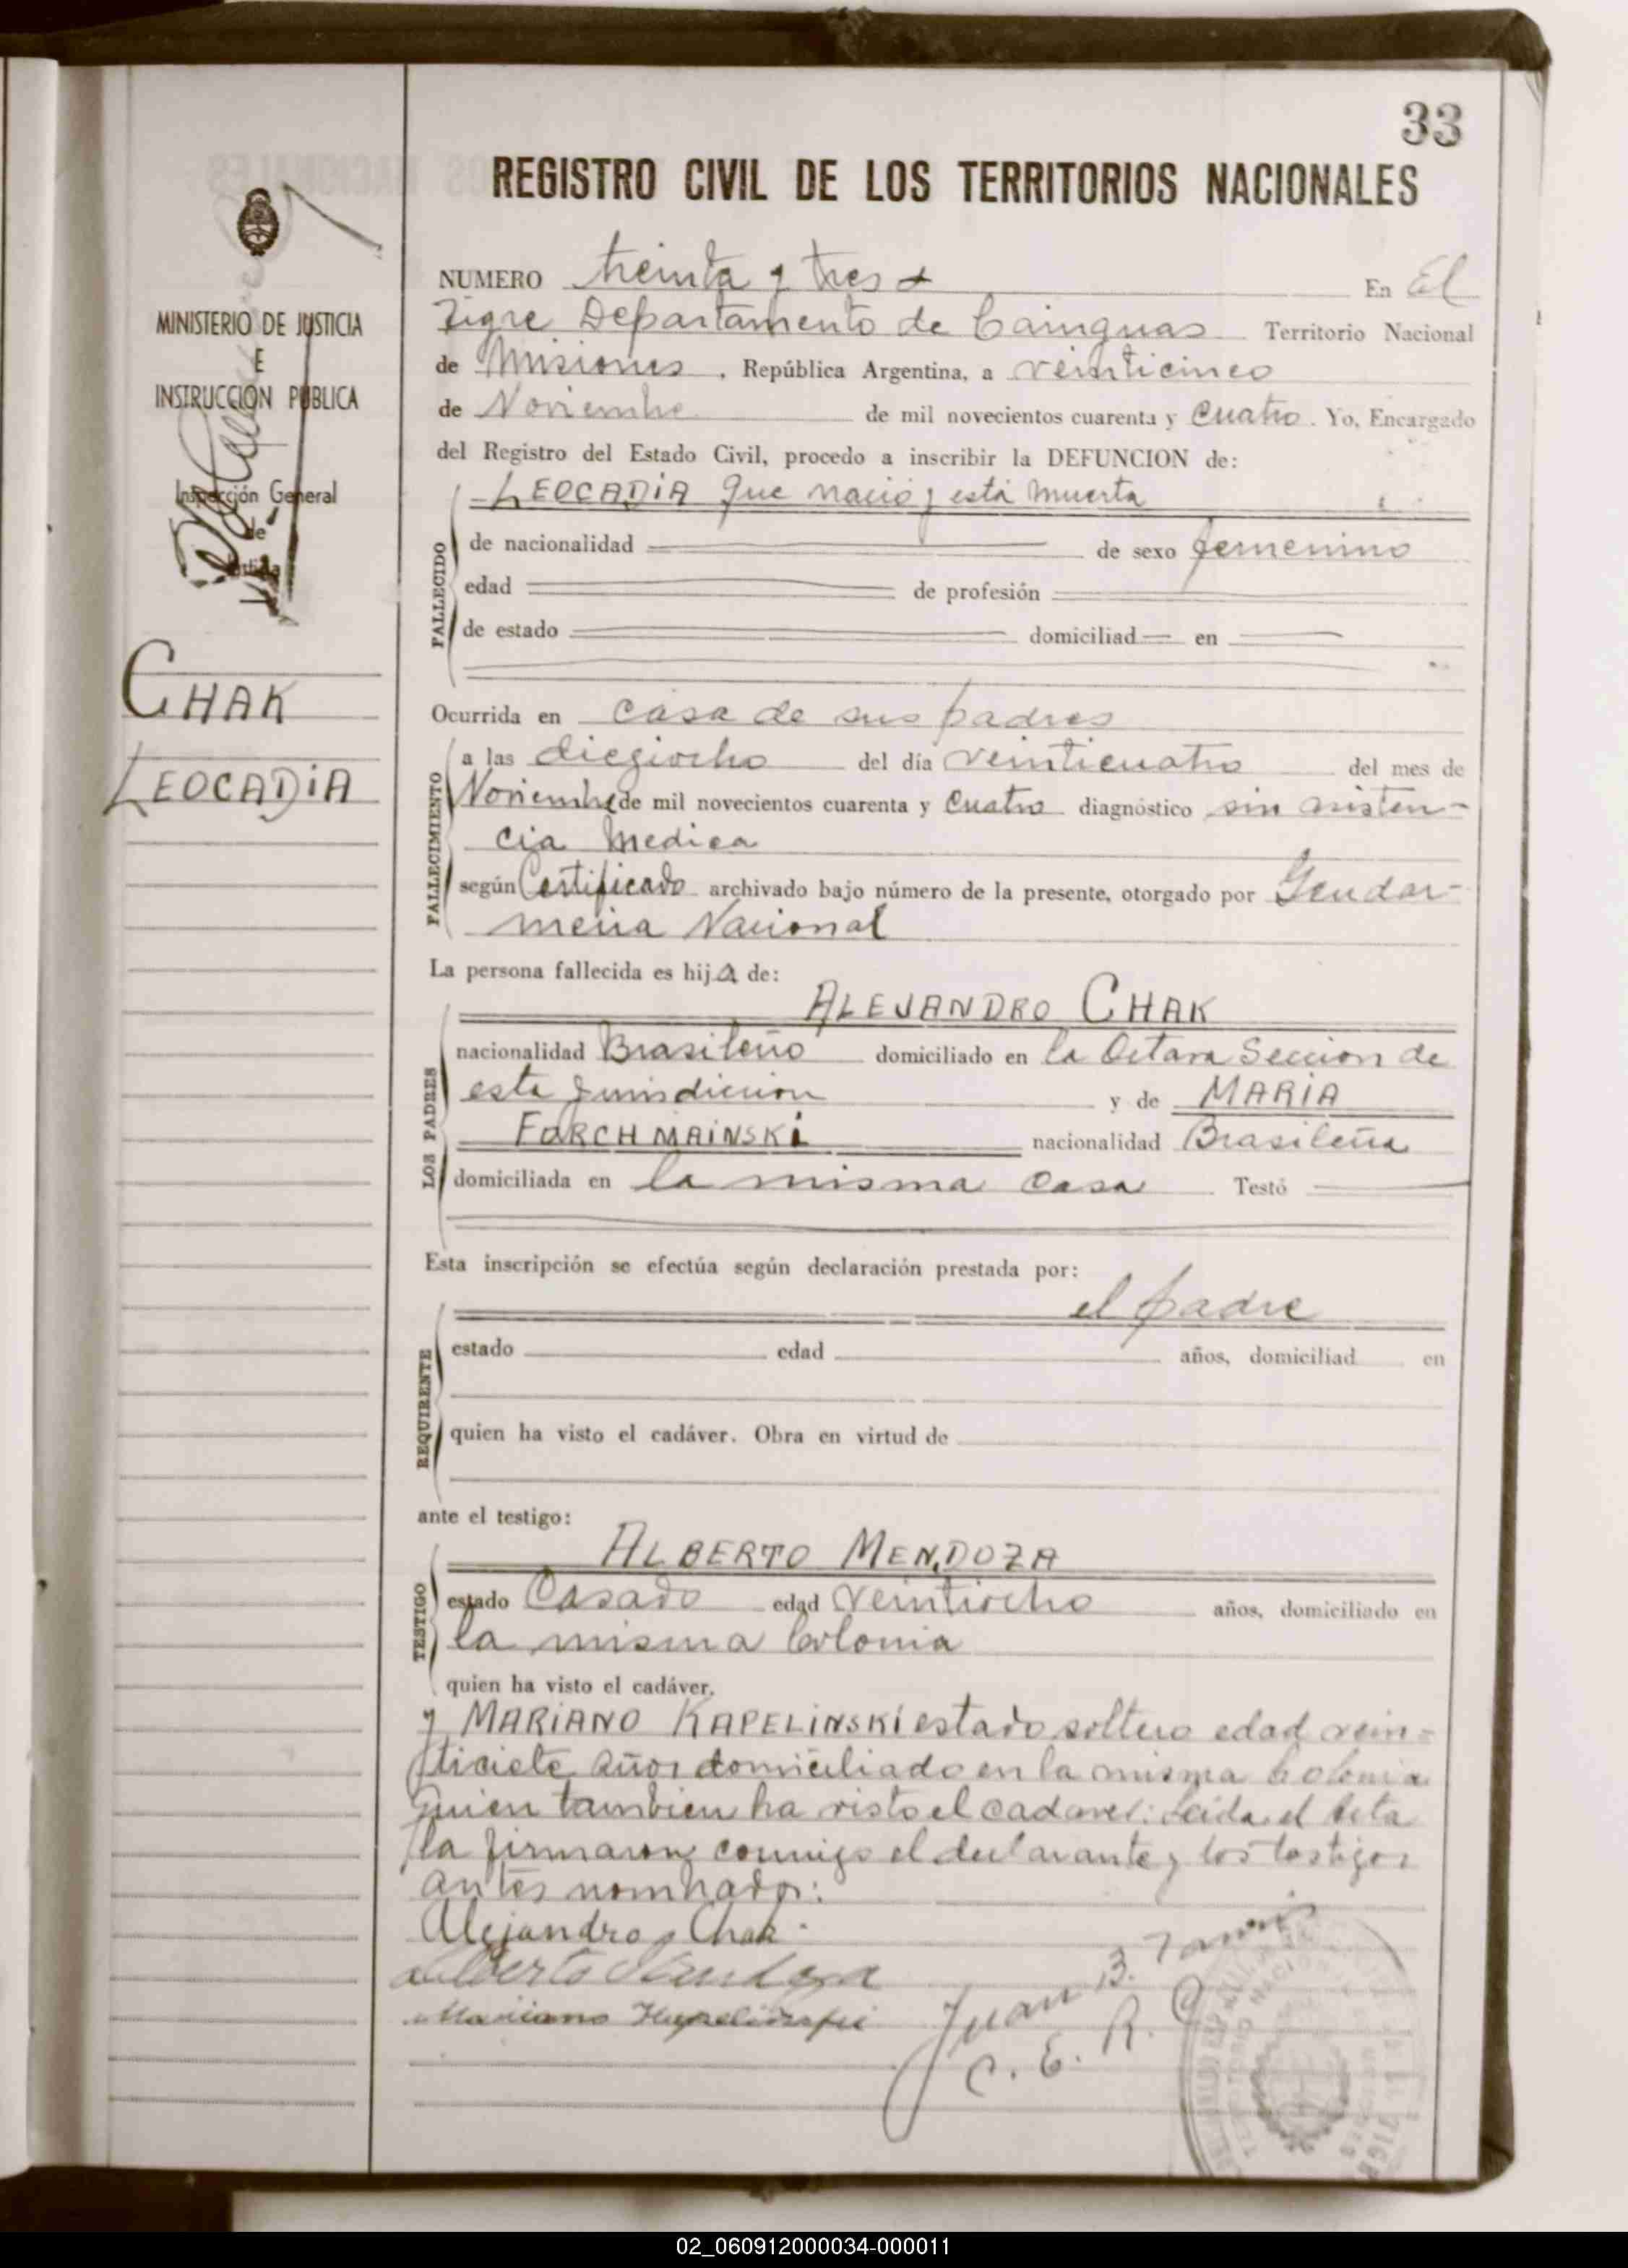 33
REGISTRO CIVIL DE LOS TERRITORIOS NACIONALES
MINISTERIO DE JUSTICIA
E
INSTRUCCIÓN PUBLICA
Inspección General
de
Justicia
CHAK
LEOCADIA
NUMERO treinta y tres En El
Tigre Departamento de Cainguas Territorio Nacional
de Misiones, República Argentina, a veinticinco
de Noviembre de mil novecientos cuarenta y cuatro. Yo, Encargado
del Registro del Estado Civil, procedo a inscribir la DEFUNCION de:
LEOCADIA que nació y está muerta
FALLECIDO
de nacionalidad de sexo femenino
edad de profesión
de estado domiciliad en
Ocurrida en casa de sus padres
FALLECIMIENTO
a las dieziocho del día veinticuatro del mes de
Noviembre de mil novecientos cuarenta y cuatro diagnóstico sin asisten-
cia Medica
según Certificado archivado bajo número de la presente, otorgado por Gendar-
meria Nacional
La persona fallecida es hija de:
ALEJANDRO CHAK
LOS PADRES
nacionalidad Brasileño domiciliado en la Octava Seccion de
esta Jurisdicion y de MARIA
FORCHMAINSKI nacionalidad Brasileña
domiciliada en la misma casa Testó
Esta inscripción se efectúa según declaración prestada por:
el padre
REQUIRENTE
estado edad años, domiciliad en
quien ha visto el cadáver. Obra en virtud de
ante el testigo:
ALBERTO MENDOZA
TESTIGO
estado Casado edad veintiocho años, domiciliado en
la misma Colonia
quien ha visto el cadáver.
y MARIANO KAPELINSKI estado soltero edad vein-
ticiete años domiciliado en la misma Colonia
quien tambien ha visto el cadaver: Leida el Acta
la firmaron conmigo el declarante y los testigos
antes nombrados:
Alejandro Chak
Alberto Mendoza
Mariano Kapelinski
Juan B.
C. E. R. C
02_060912000034-000011